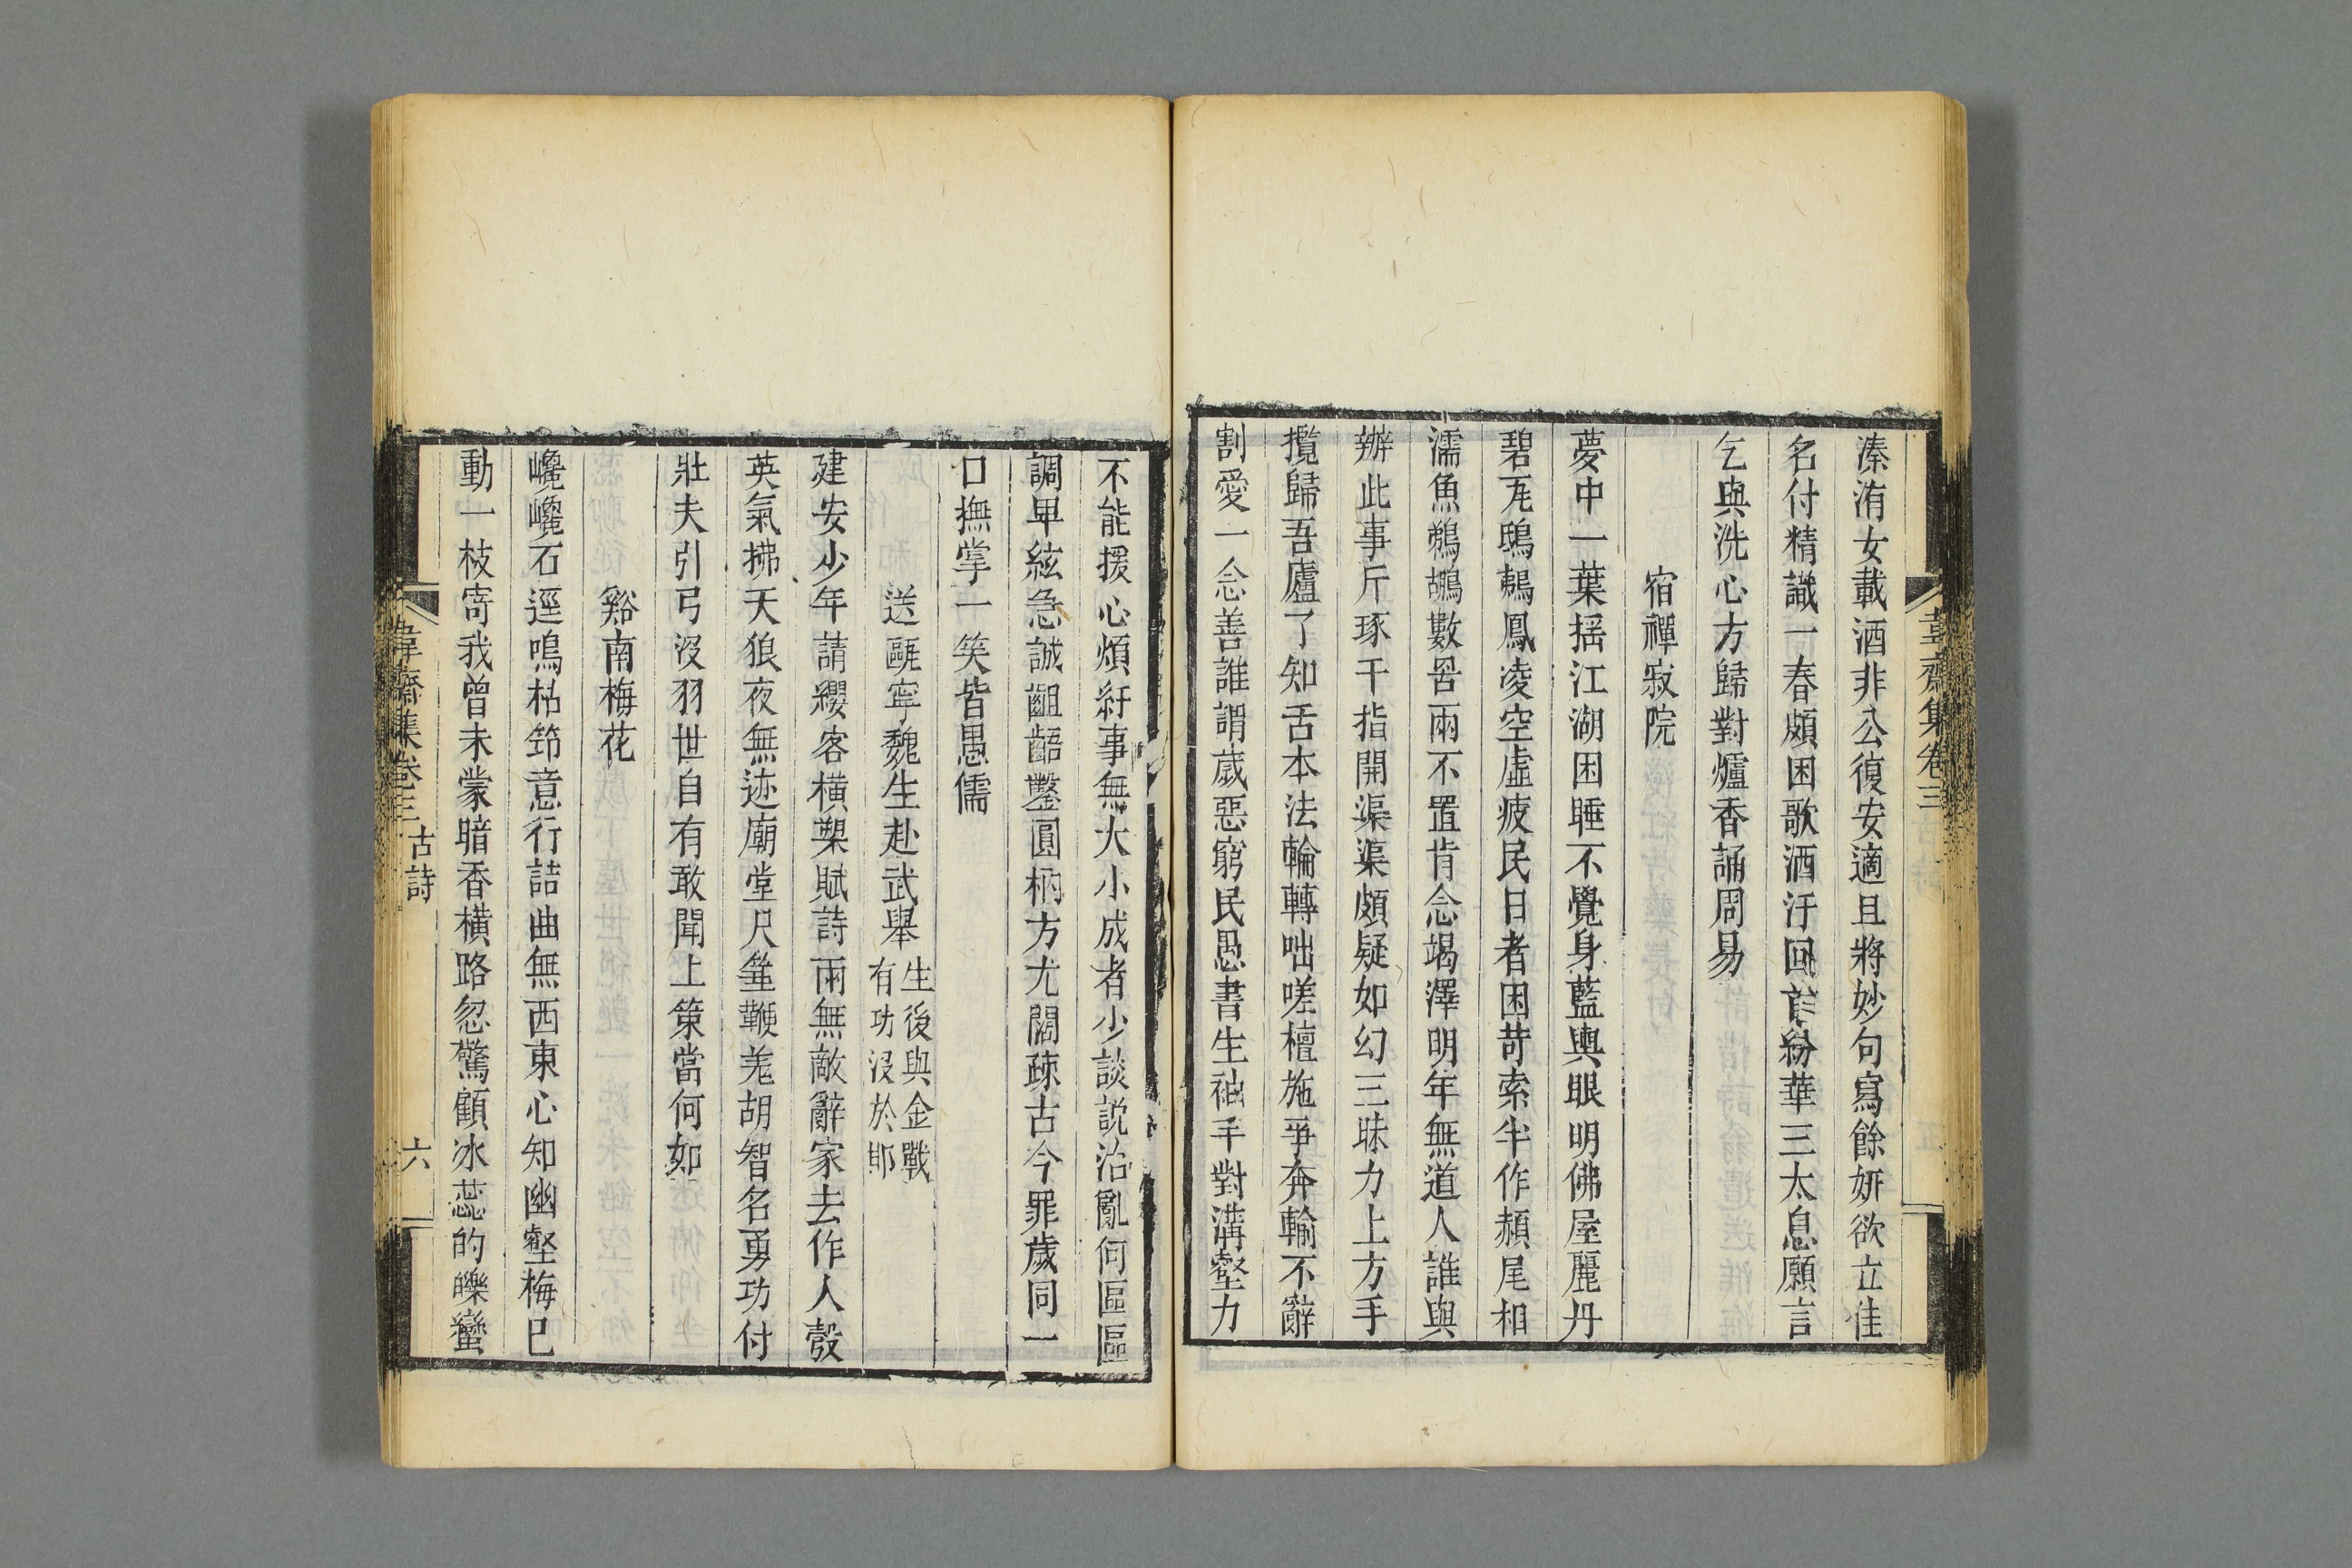 溱洧女載酒非公復安適且將妙句寫餘妍欲立佳
名付精識一春頗困歌酒汙回首紛華三太息願言
乞與洗心方歸對爐香誦周易
宿禪寂院
夢中一葉揺江湖困睡不覺身藍輿眼明佛屋麗丹
碧瓦鴟鵄鳳凌空虛疲民日者困苛索半作頳尾相
濡魚鵜鶘數罟兩不置肯念竭澤明年無道人誰與
辦此事斤琢千指開渠渠頗疑如幻三昧力上方手
攬歸吾廬了知舌本法輪轉咄嗟檀施爭奔輸不辭
割愛一念善誰謂歲惡窮民愚書生袖手對溝壑力
韋齋集卷三
不能援心煩紆事無大小成者少談説治亂何區區
調卑絃急誠齟齬鑿圓枘方尤闊疎古今罪歲同一
口撫掌一笑皆愚儒
送甌寧魏生赴武舉 生後與金戰有功没於郡
建安少年請纓客横槊賦詩兩無敵辭家去作人彀
英氣拂天狼夜無迹廟堂尺箠鞭羌胡智名勇功付
壯夫引弓没羽世自有敢聞上策當何如
谿南梅花
巉巉石逕鳴枯筇意行詰曲無西東心知幽壑梅已
動一枝寄我曾未蒙暗香横路忽驚顧冰蕊的皪蠻
韋齋集卷三 古詩 六